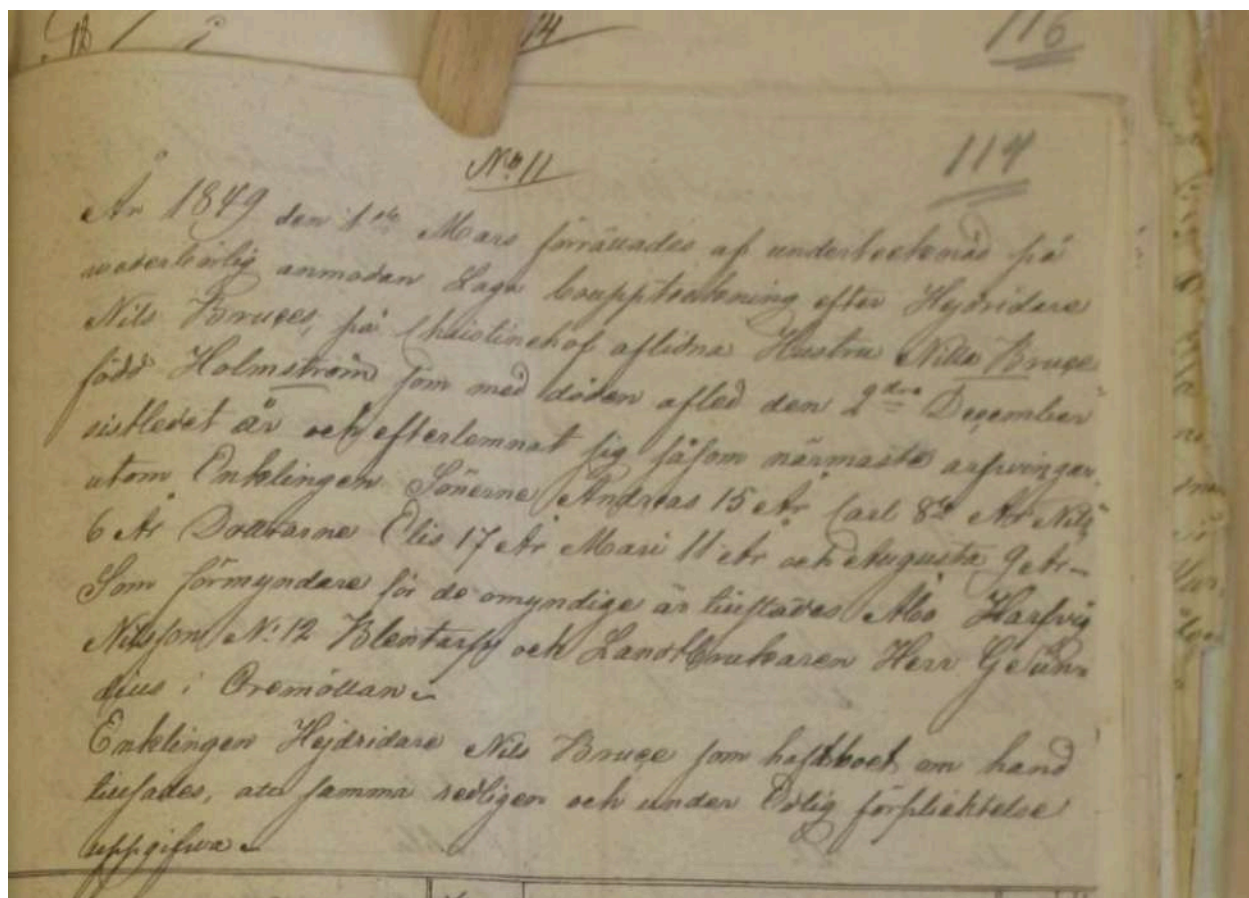 116
14
114
No 11
År 1849 den 1ste Mars förrättades af undertecknad på
wederbörlig anmodan Laga bouppteckning efter Hejdridare
Nils Bruces, på Christinehof aflidna Hustru Nilla Bruce
född Holmström som med döden afled den 2dra December
sistledet år och efterlemnat sig såsom närmaste arfvingar,
utom Enklingen Sönerne Andreas 15 År Carl 8 År Nils
6 År Döttrarne Elis 17 År Mari 11 År och Augusta 9 År –
Som förmyndare för de omyndige är tillstädes Åbo
Nilsson N: 12 Blentarp och Landtbrukaren Herr
i Öremöllan
Enklingen Hejdridare Nils Bruce som haft boet om hand
tillsades, att samma redligen och under Edlig förpliktelse
uppgifva